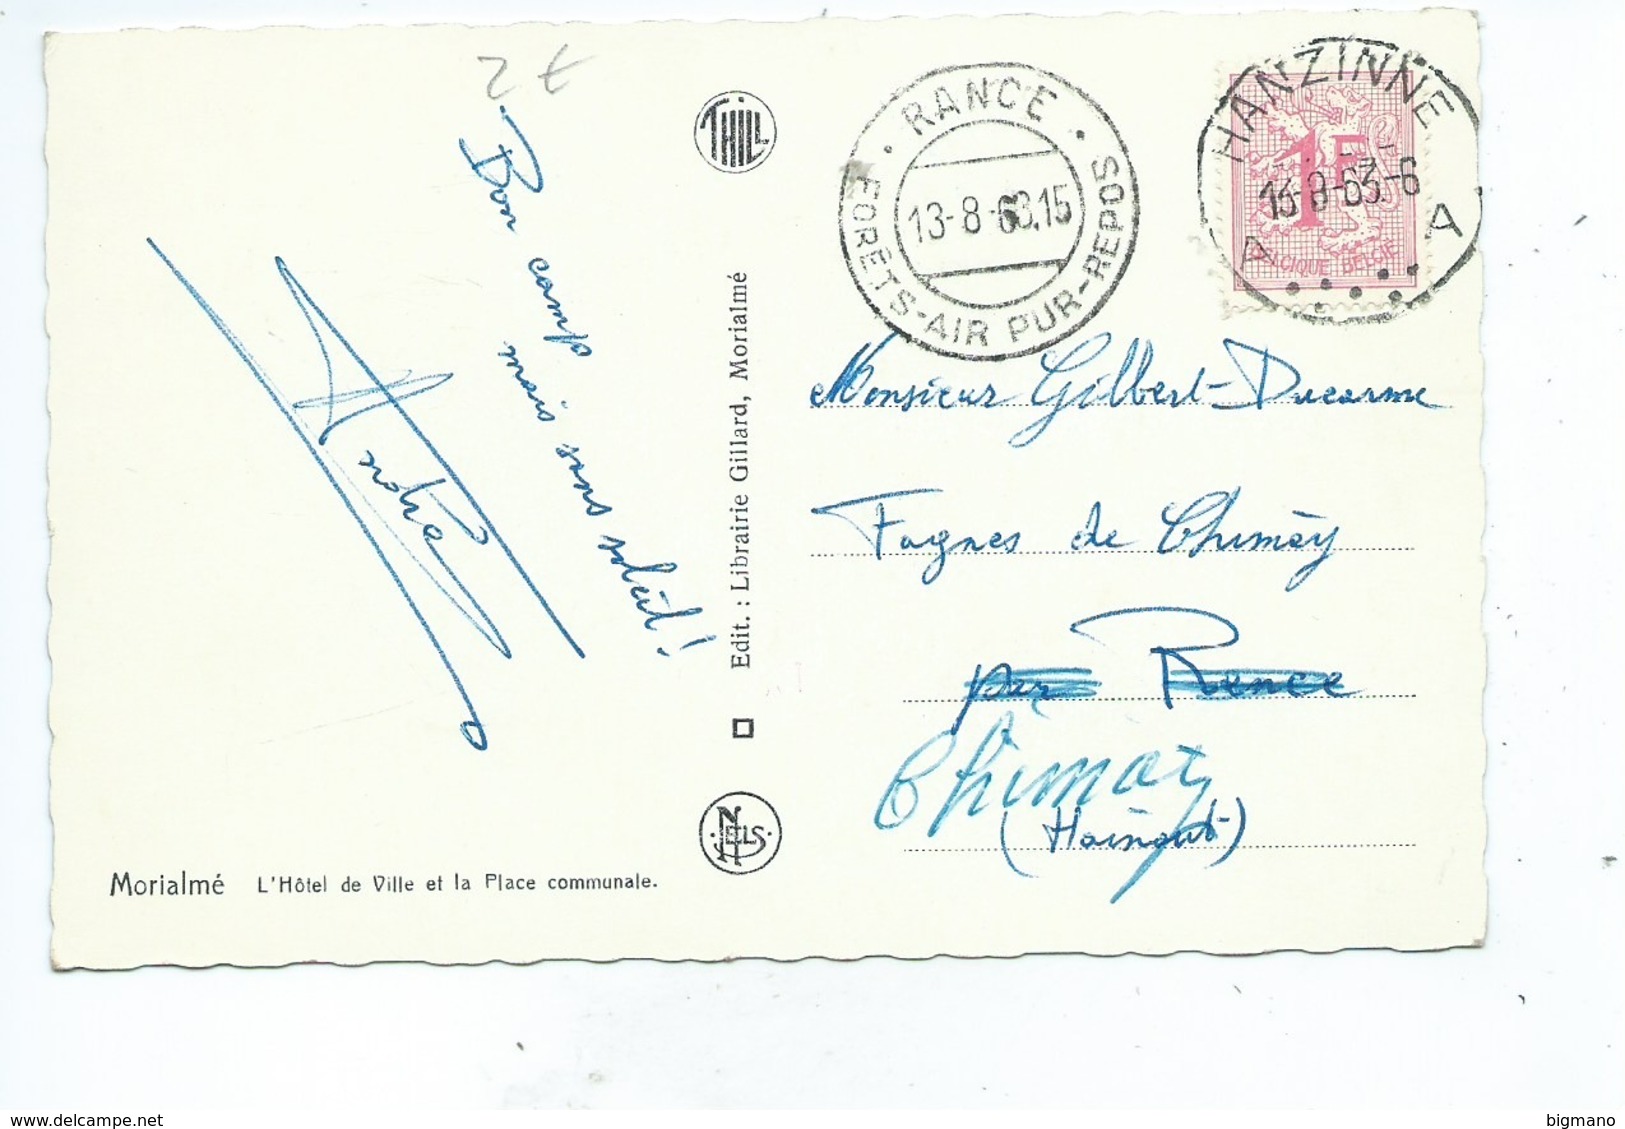 2 €
Bon camp
mais sans soleil !
THILL
Edit. : Librairie Gillard, Morialmé
NELS
Morialmé L'Hôtel de Ville et la Place communale.
RANCE
13-8-63.15
FORÊTS-AIR PUR-REPOS
HANZINNE
A A
1F
BELGIQUE BELGIE
Monsieur Gilbert-Ducarme
Fagnes de Chimay
par Rance
Chimay
(Hainaut)
bigmano